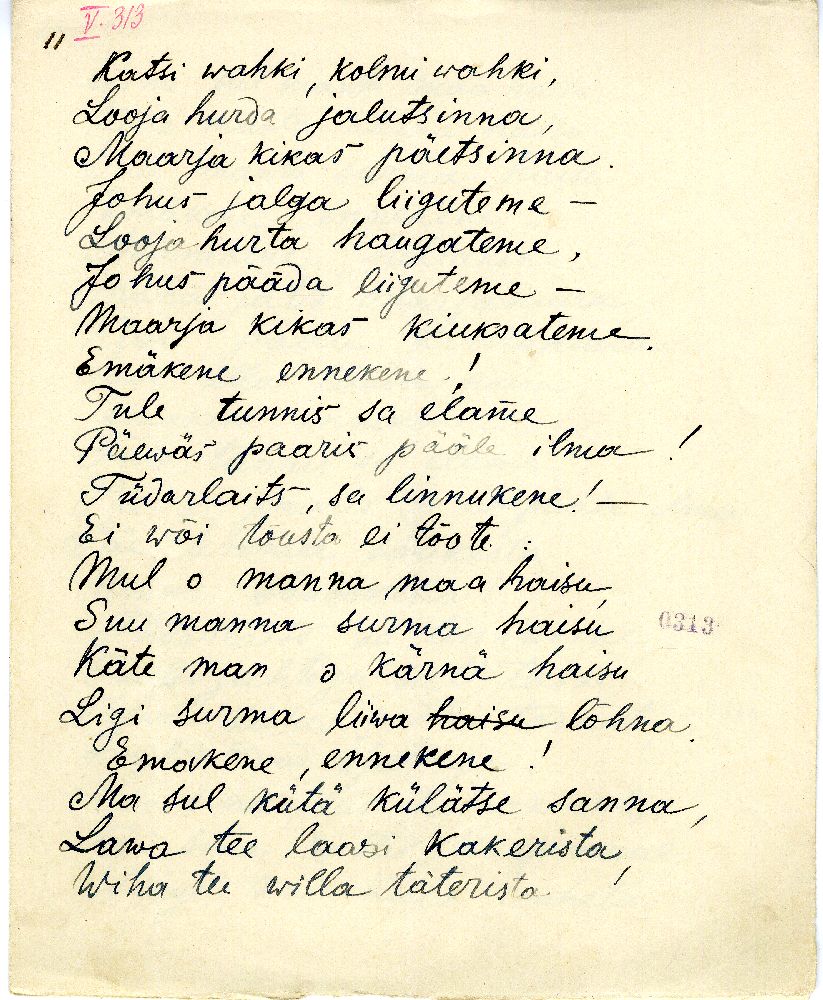 V. 313
"
Katsi wahki, kolmi wahki,
Looja hurda jalutsinna,
Maarja kikas päetsinna.
Johus jalga liiguteme —
Looja hurta haugateme,
Johus pääda liiguteme —
Maarja kikas kiuksateme.
Emäkene ennekene!
Tule tunnis sa elame
Päewäs paaris pääle ilma!
Tüdarlaits, sa linnukene! —
Ei wõi tõusta ei tõote:
Mul o manna maa haisu,
Suu manna surma haisu
0313
Käte man o kärnä haisu
Ligi surma liiwa haisu lõhna.
Emakene, ennekene!
Ma sul kütä külätse sanna,
Lawa tee laasi kakerista,
Wiha tee willa täterista!